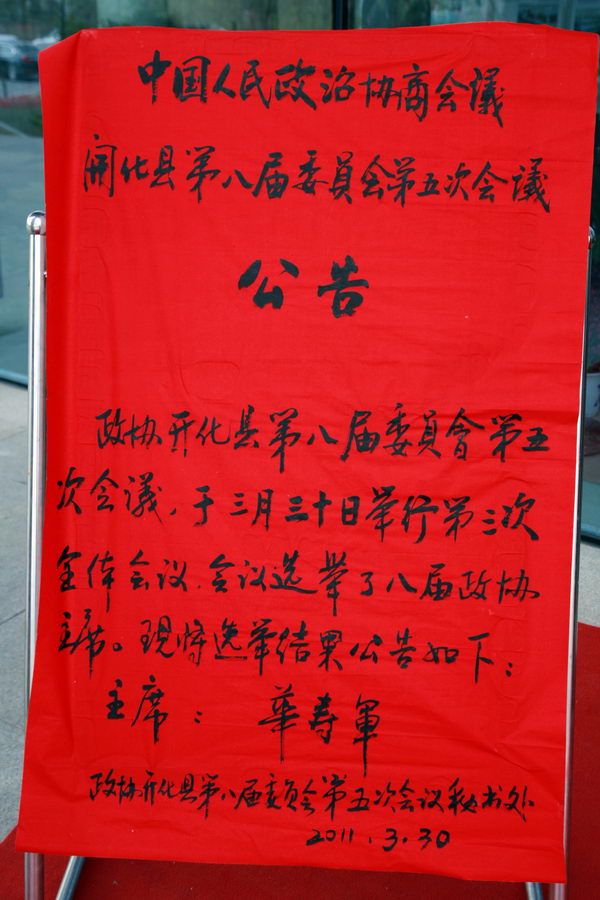 中国人民政治协商会議
開化县第八届委員会第五次会議
公告
政协开化县第八届委員會第五
次会議，于三月三十日举行第三次
全体会议.会议选举了八届政协
主席。现将选举结果公告如下：
主席：華寿軍
政协开化县第八届委员会第五次会议秘书处
2011.3.30